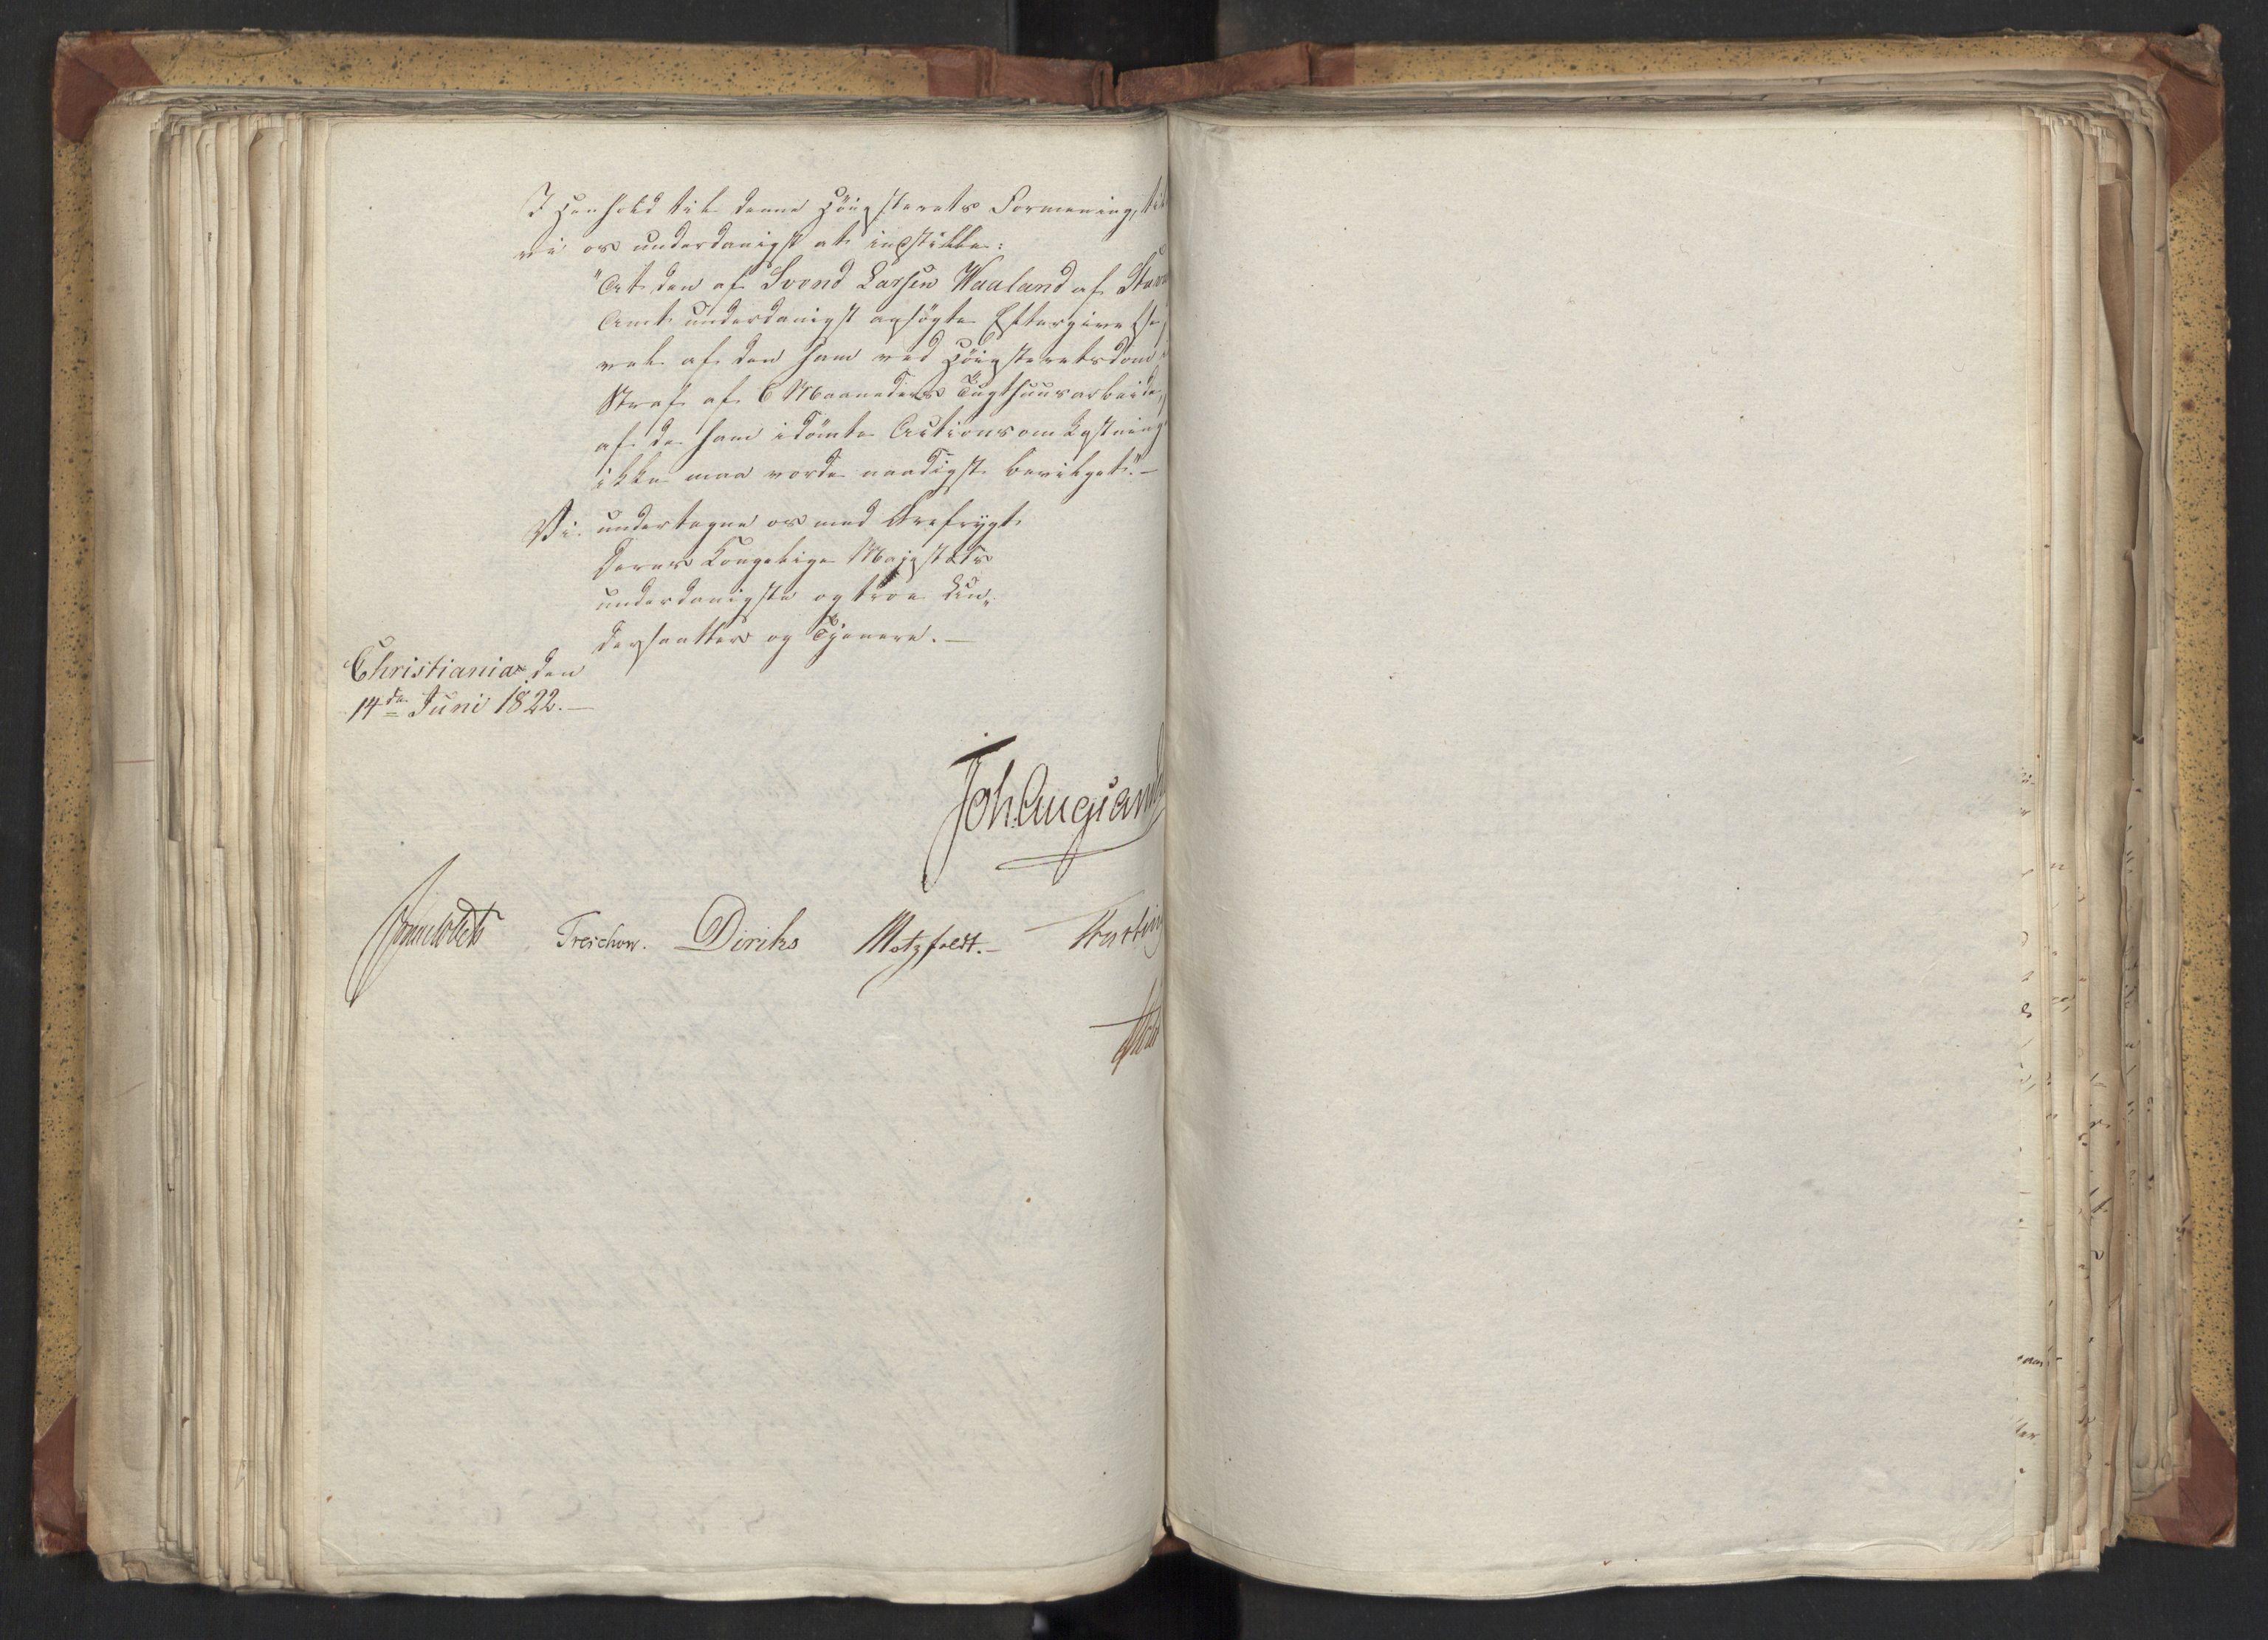 I Henhold til denne Höigsterets Formening, til
vi os underdanigst at indstille:
"At den af Svend Larsen Waaland af Stava
Amt underdanigst ansögte Eftergivelse,
vel af den ham ved Höigsteretsdom i
Straf af 6 Maaneders Tugthuusarbeide,
af de ham idömte Actionsomkostning
ikke maa vorde naadigst bevilget." —
Vi undertegne os med Ærefrygt
Deres Kongelige Majestæts
underdanigste og troe Un„
dersaatter og Tjenere. —
Christiania den
14de Juni 1822. —
Joh. Aug: Sand
Sommerhielm Treschow. Diriks Motzfeldt. — Fasting
Holst